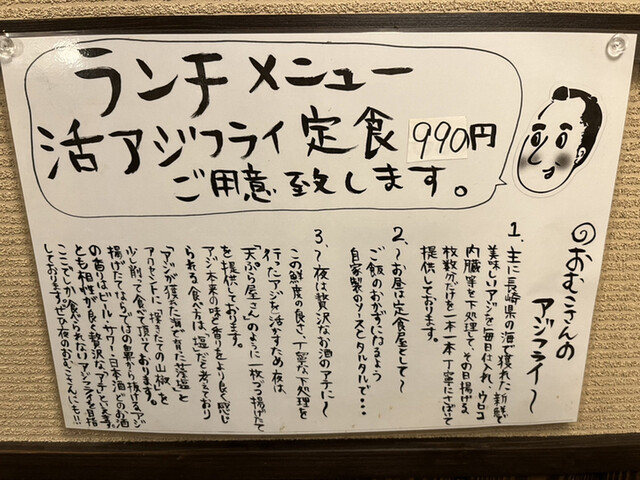 ランチメニュー
活アジフライ定食 990円
ご用意致します。
◎おむこさんの
アジフライ〜
1. 主に長崎県の海で獲れた新鮮で
美味しいアジを毎日仕入れ、ウロコ
内臓等を下処理して、その日揚げる
枚数分だけを一本一本丁寧にさばいて
提供しております。
2. 〜お昼は定食屋として〜
ご飯のおかずになるよう
自家製のソースとタルタルで・・・
3. 〜夜は贅沢なお酒のアテに〜
この鮮度の良さ、丁寧な下処理を
行ったアジを活かすため、夜は
「天ぷら屋さん」のように一枚づつ揚げたて
を提供しております。
アジ本来の味と香りをより良く感じ
られる食べ方は、塩だと考えており
「アジが獲れた海で育った藻塩」と
アクセントに「挽きたての山椒」を
少し削って食べて頂いております。
揚げたてならではの鼻から抜けるアジ
の香りはビール・サワー・日本酒どのお酒
とも相性が良く贅沢なアテといえます。
ここでしか食べられないアジフライを目指
しております。ぜひ夜のおむこさんにも!!